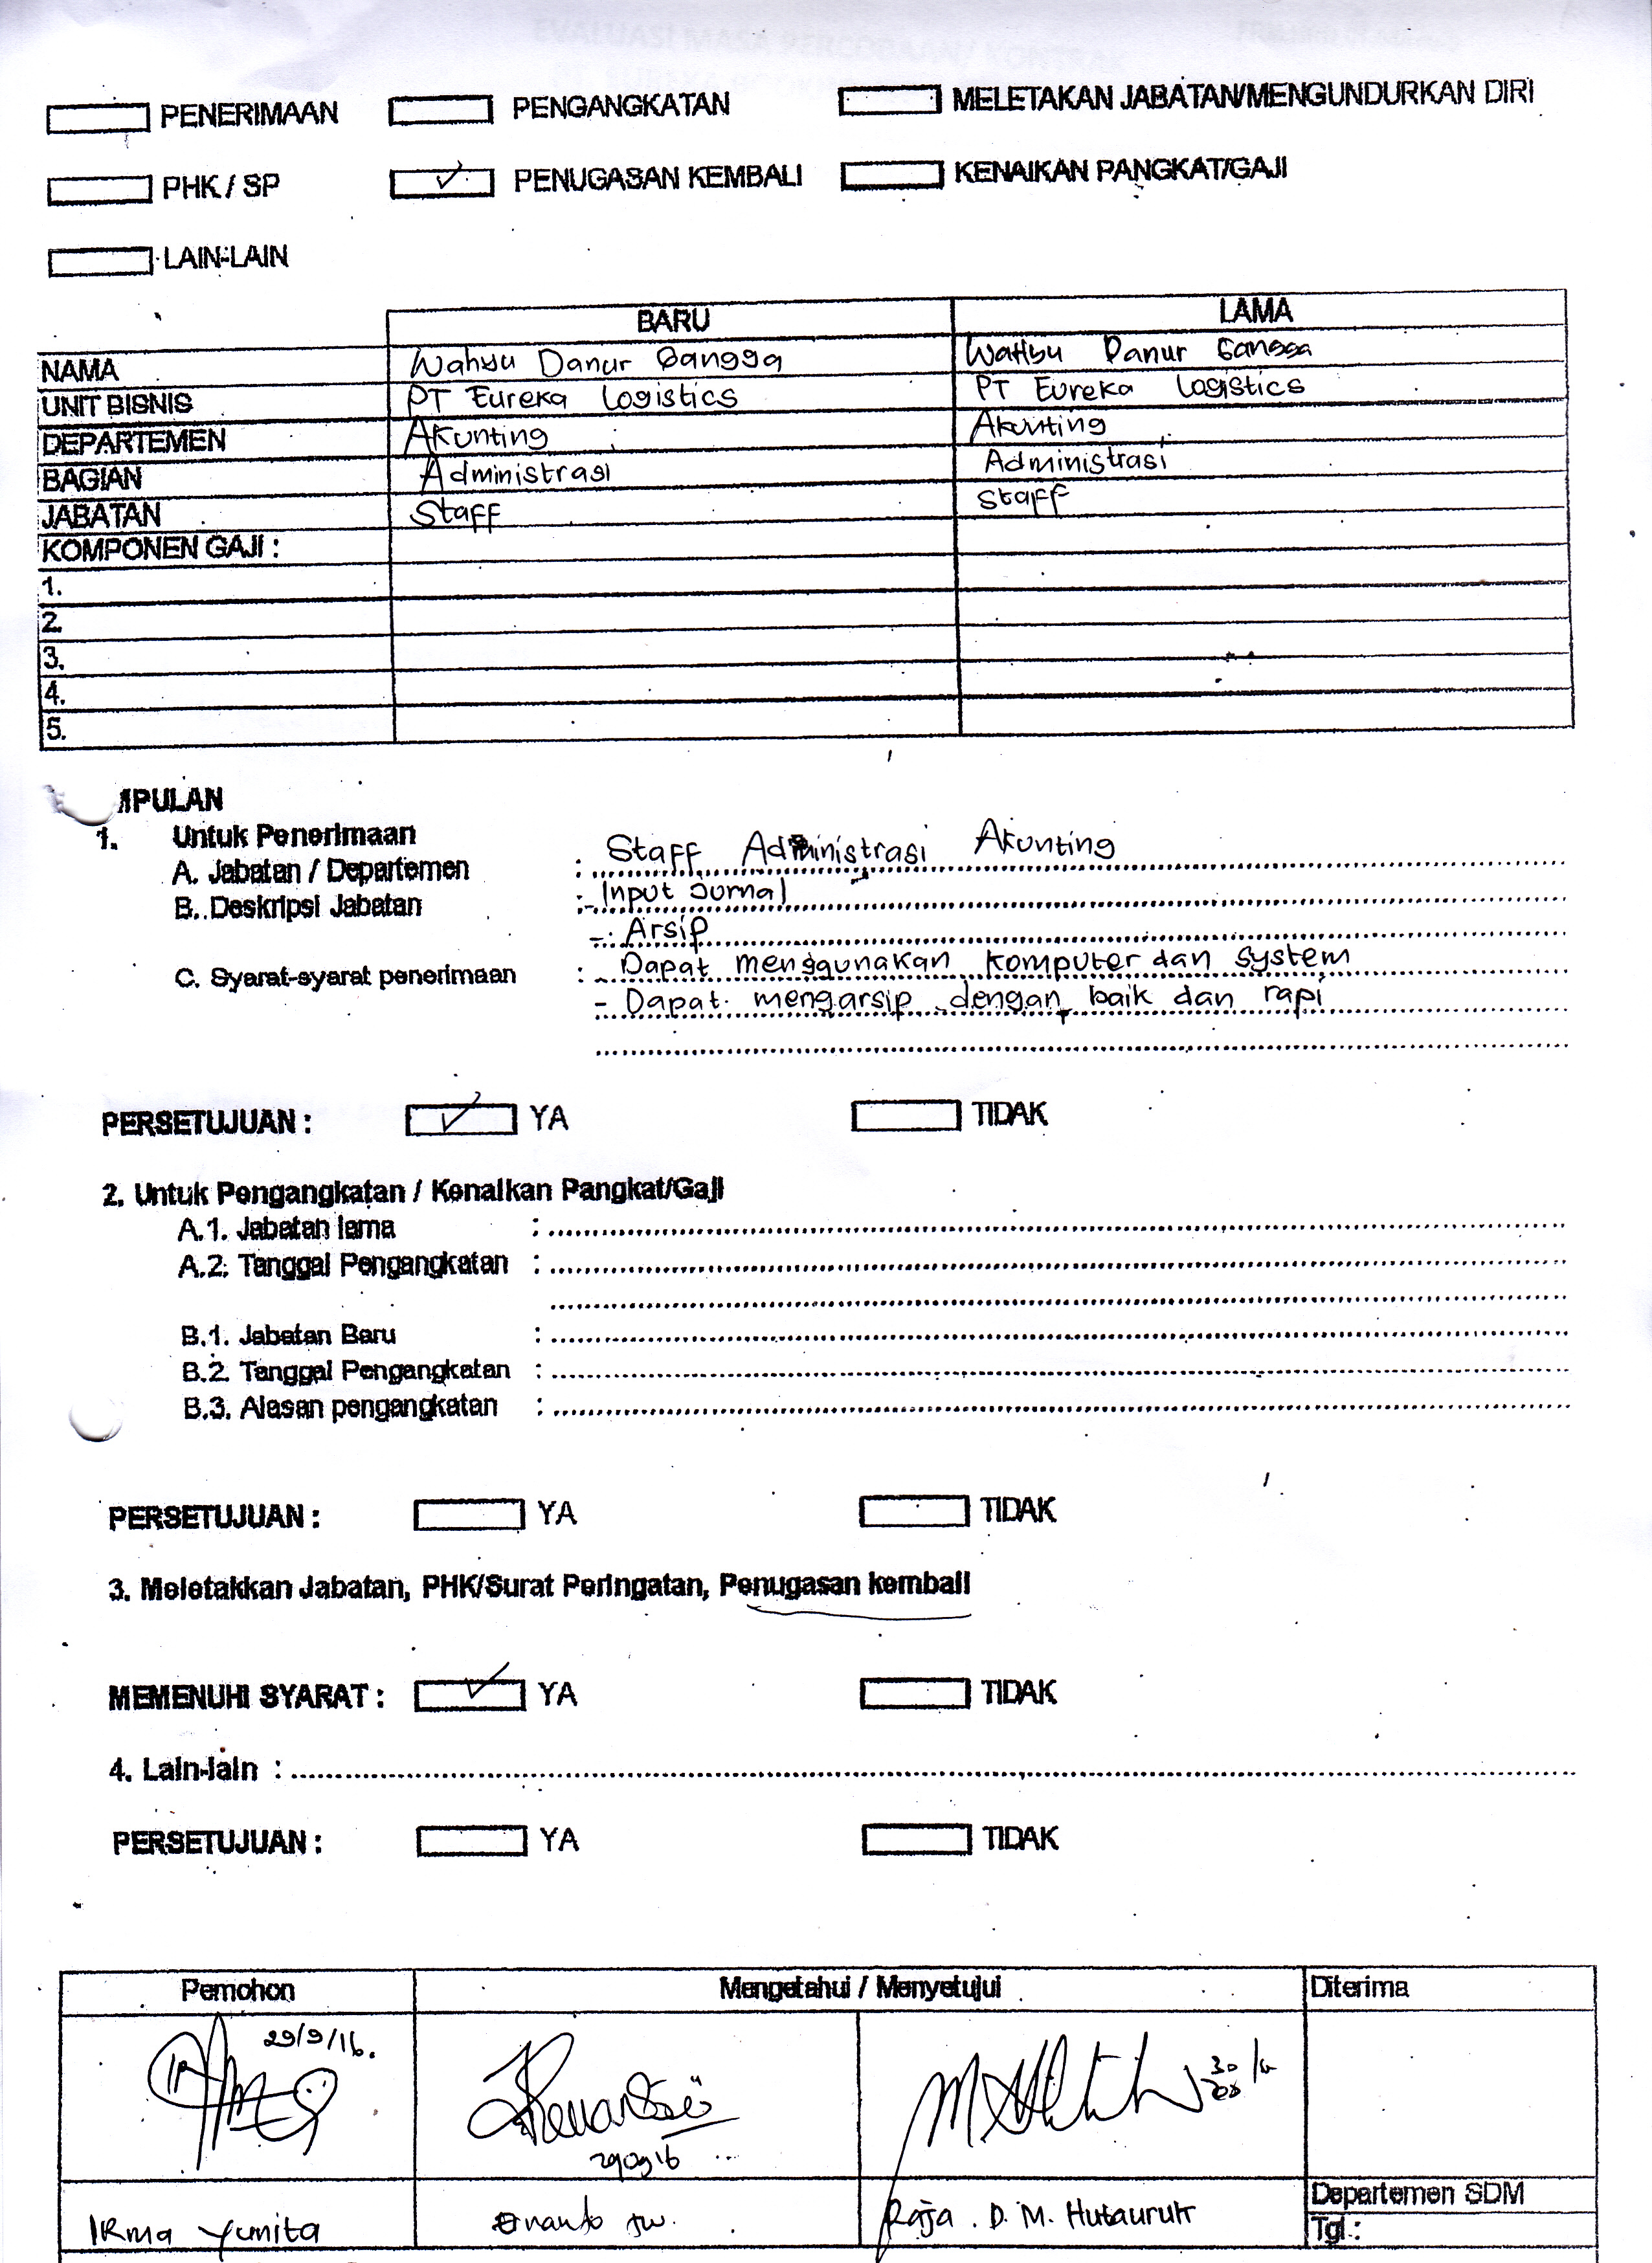 PENERIMAAN PENGANGKATAN MELETAKAN JABATAN/MENGUNDURKAN DIRI
PHK / SP ✓ PENUGASAN KEMBALI KENAIKAN PANGKAT/GAJI
LAIN-LAIN
BARU LAMA
NAMA Wahyu Danur Gangga Wahyu Danur Gangga
UNIT BISNIS PT Eureka Logistics PT Eureka Logistics
DEPARTEMEN Akunting Akunting
BAGIAN Administrasi Administrasi
JABATAN Staff Staff
KOMPONEN GAJI :
1.
2.
3.
4.
5.
MPULAN
1. Untuk Penerimaan
A. Jabatan / Departemen : Staff Administrasi Akunting
B. Deskripsi Jabatan : - Input Jurnal
- Arsip
C. Syarat-syarat penerimaan : - Dapat menggunakan komputer dan system
- Dapat mengarsip dengan baik dan rapi
PERSETUJUAN : ✓ YA TIDAK
2. Untuk Pengangkatan / Kenaikan Pangkat/Gaji
A.1. Jabatan lama :
A.2. Tanggal Pengangkatan :
B.1. Jabatan Baru :
B.2. Tanggal Pengangkatan :
B.3. Alasan pengangkatan :
PERSETUJUAN : YA TIDAK
3. Meletakkan Jabatan, PHK/Surat Peringatan, Penugasan kembali
MEMENUHI SYARAT : ✓ YA TIDAK
4. Lain-lain :
PERSETUJUAN : YA TIDAK
Pemohon Mengetahui / Menyetujui Diterima
29/9/16.
290916
Irma Yunita Raja . D. M. Hutauruk Departemen SDM
Tgl :